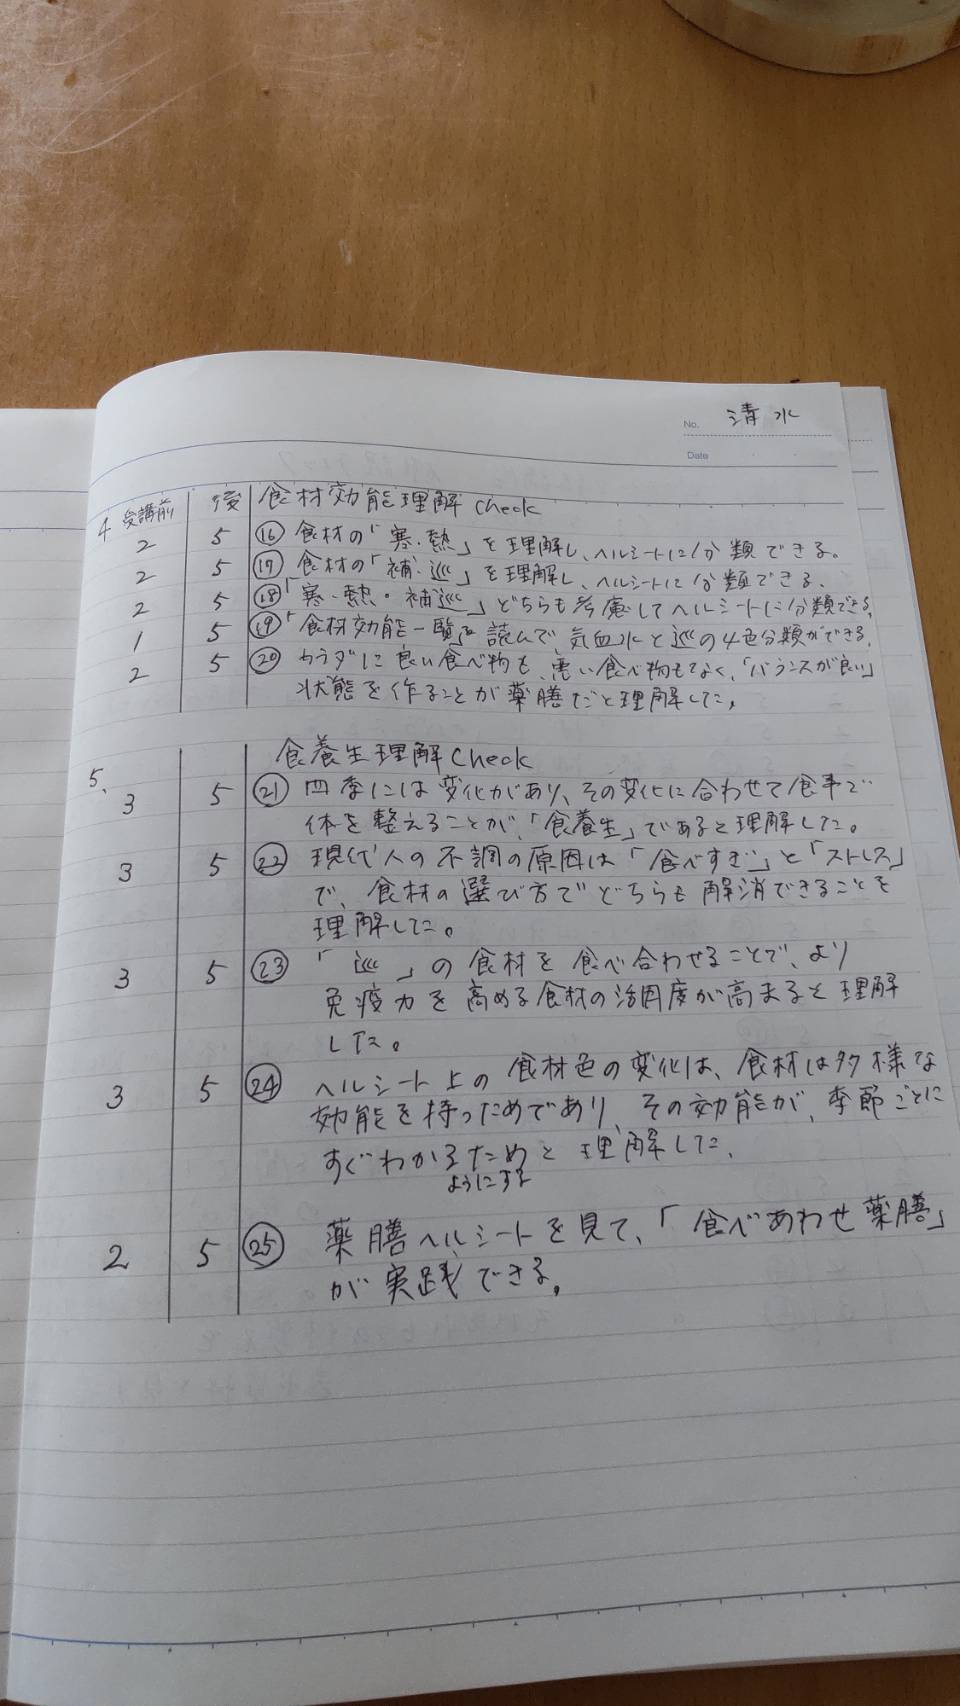 No. 清水
Date
4 受講前 後 食材効能理解Check
2 5 ⑯ 食材の「寒・熱」を理解し、ヘルシートに分類できる。
2 5 ⑰ 食材の「補・巡」を理解し、ヘルシートに分類できる。
2 5 ⑱「寒・熱・補巡」どちらも考慮してヘルシートに分類できる。
1 5 ⑲「食材効能一覧」を読んで、気血水と巡の4色分類ができる。
2 5 ⑳ カラダに良い食べ物も、悪い食べ物もなく、「バランスが良い」
状態を作ることが薬膳だと理解した。
5. 食養生理解Check
3 5 ㉑ 四季には変化があり、その変化に合わせて食事で
体を整えることが、「食養生」であると理解した。
3 5 ㉒ 現代人の不調の原因は「食べすぎ」と「ストレス」
で、食材の選び方でどちらも解消できることを
理解した。
3 5 ㉓ 「巡」の食材を食べ合わせることで、より
免疫力を高める食材の活用度が高まると理解
した。
3 5 ㉔ ヘルシート上の食材色の変化は、食材は多様な
効能を持つためであり、その効能が、季節ごとに
すぐわかるためと理解した。
ようにする
2 5 ㉕ 薬膳ヘルシートを見て、「食べあわせ薬膳」
が実践できる。